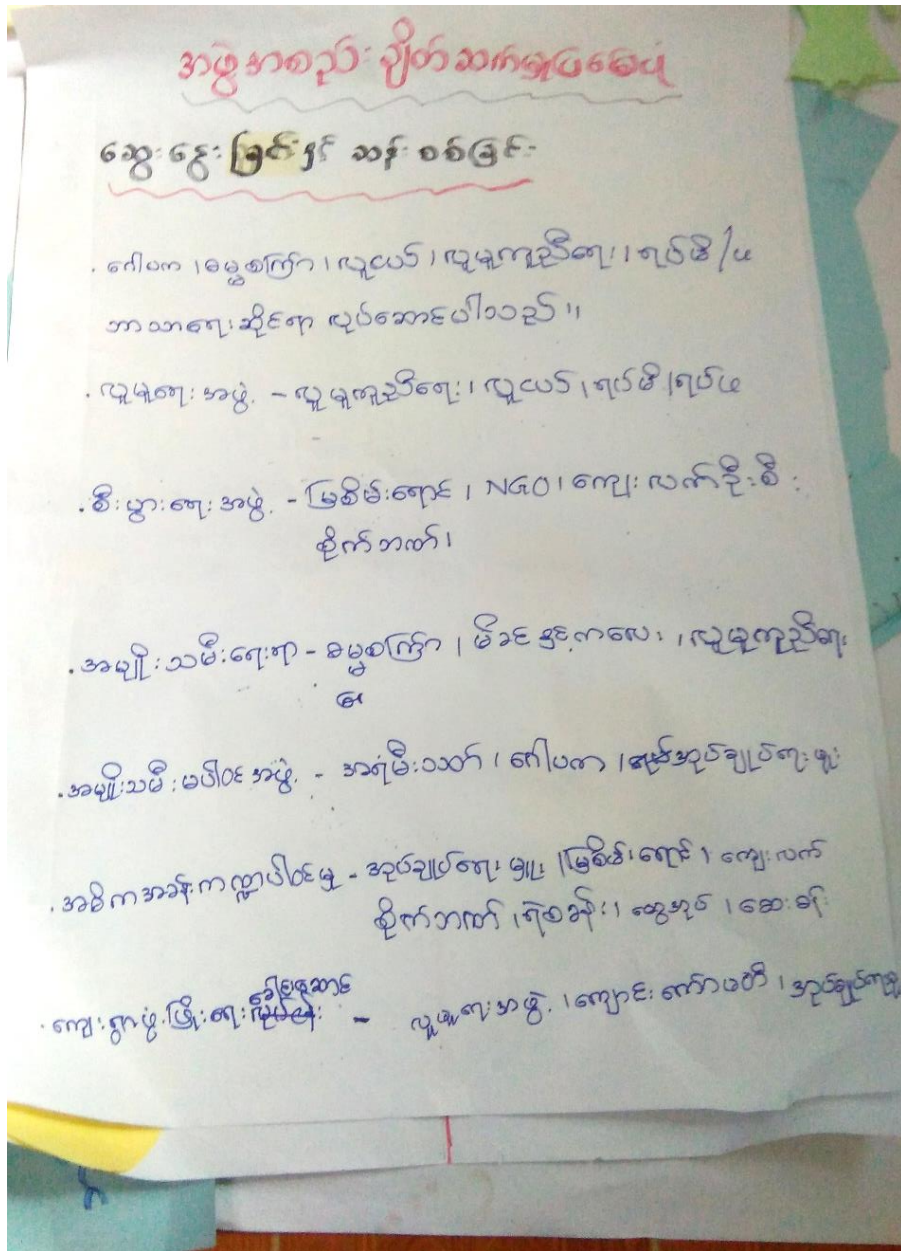 အဖွဲ့အစည်းချိတ်ဆက်မှုပြမြေပုံ
ဆွေးနွေးခြင်းနှင့် ဆန်းစစ်ခြင်း
. ဂေါပက ၊ ဓမ္မစကြာ ၊ လူငယ် ၊ လူမှုကူညီရေး ၊ ရပ်မိ/ဖ
ဘာသာရေးဆိုင်ရာ လုပ်ဆောင်ပါသည်။
. လူမှုရေးအဖွဲ့ - လူမှုကူညီရေး ၊ လူငယ် ၊ ရပ်မိ ၊ ရပ်ဖ
. စီးပွားရေးအဖွဲ့ - မြစိမ်းရောင် ၊ NGO ၊ ကျေးလက်ဦးစီး
စိုက်ဘဏ် ၊
. အမျိုးသမီးရေးရာ - ဓမ္မစကြာ ၊ မိခင်နှင့်ကလေး ၊ လူမှုကူညီရေး
. အမျိုးသမီးမပါဝင်အဖွဲ့ - အရံမီးသတ် ၊ ဂေါပက ၊ အုပ်ချုပ်ရေးမှူး
. အဓိကအခန်းကဏ္ဍပါဝင်မှု - အုပ်ချုပ်ရေးမှူး ၊ မြစိမ်းရောင် ၊ ကျေးလက်
စိုက်ဘဏ် ၊ ရဲစခန်း ၊ ထွေအုပ် ၊ ဆေးခန်း
. ကျေးရွာဖွံ့ဖြိုးရေးခေါင်းဆောင် - လူမှုရေးအဖွဲ့ ၊ ကျောင်းကော်မတီ ၊ အုပ်ချုပ်ရေးမှူး